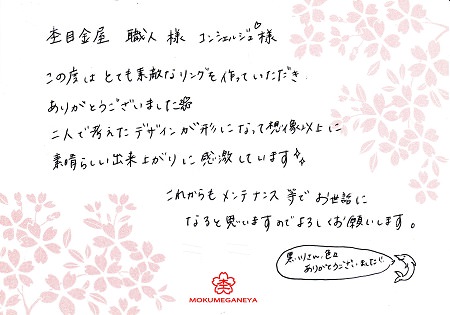 杢目金屋 職人 様 コンシェルジュ様
この度は とても素敵なリングを作っていただき
ありがとうございました
二人で考えたデザインが形になって想像以上に
素晴らしい出来上がりに感激しています
これからも メンテナンス 等で お世話に
なると思いますのでよろしくお願いします。
黒川さん、色々
ありがとうございました!!
MOKUMEGANEYA